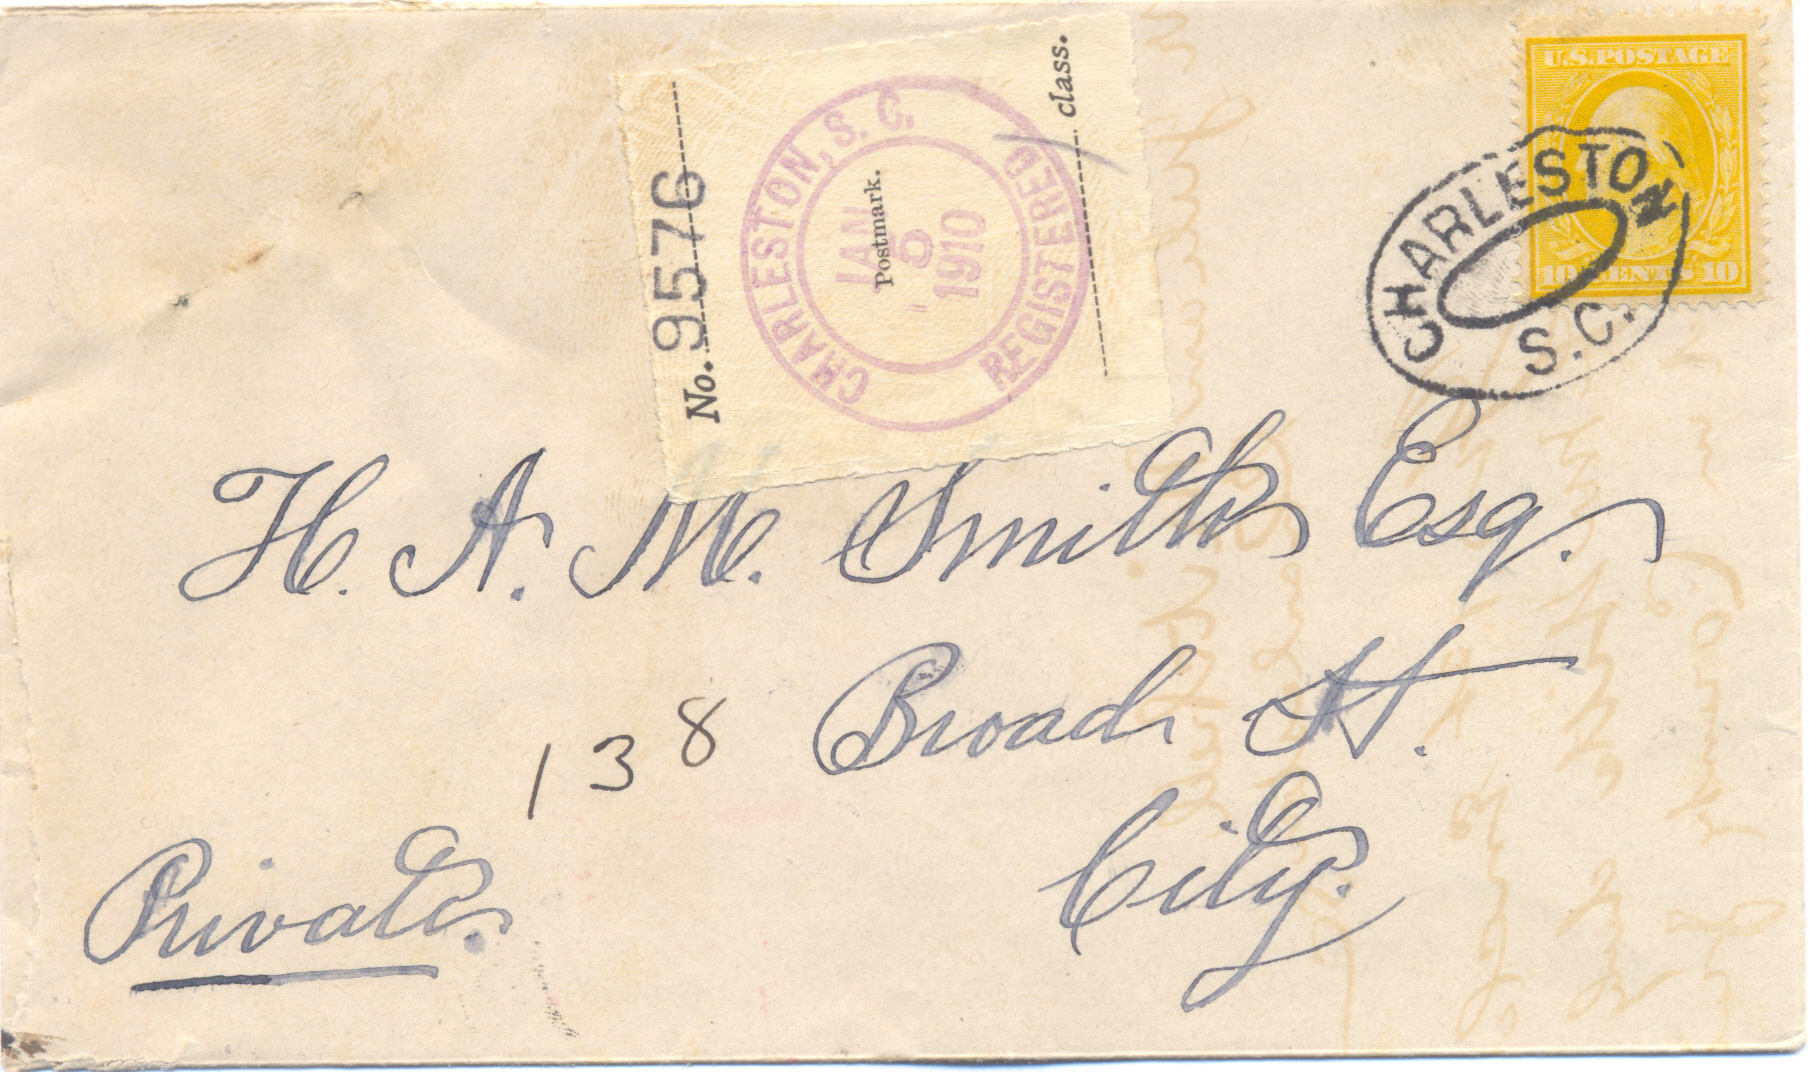 U.S. POSTAGE
10 CENTS 10
CHARLESTON
S.C.
No. 9576
CHARLESTON, S. C.
REGISTERED
JAN
5
1910
Postmark.
class.
H. A. M. Smith Esq.
138 Broad St.
City.
Private.